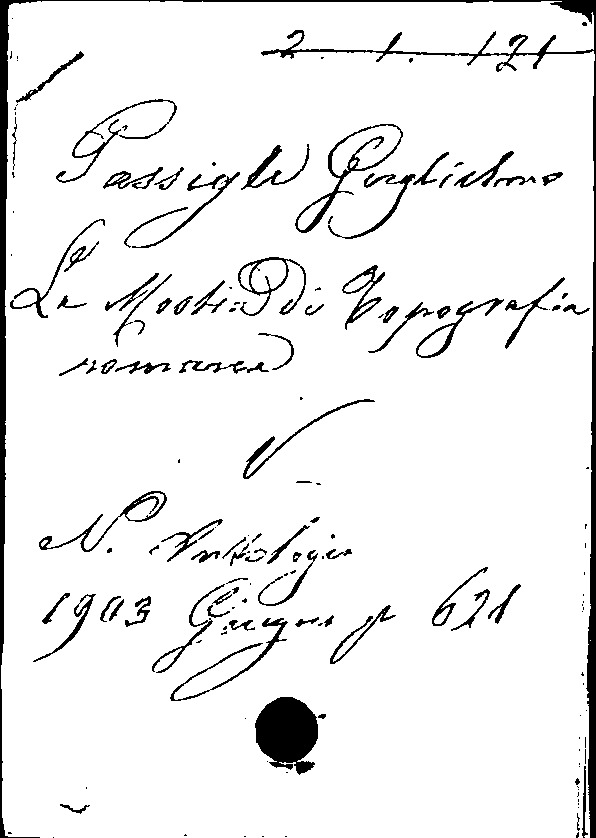 2. 1. 121
Passigli Guglielmo
La Mostra di Topografia
romana
V
N. Antologia
1903 Giugno p 621